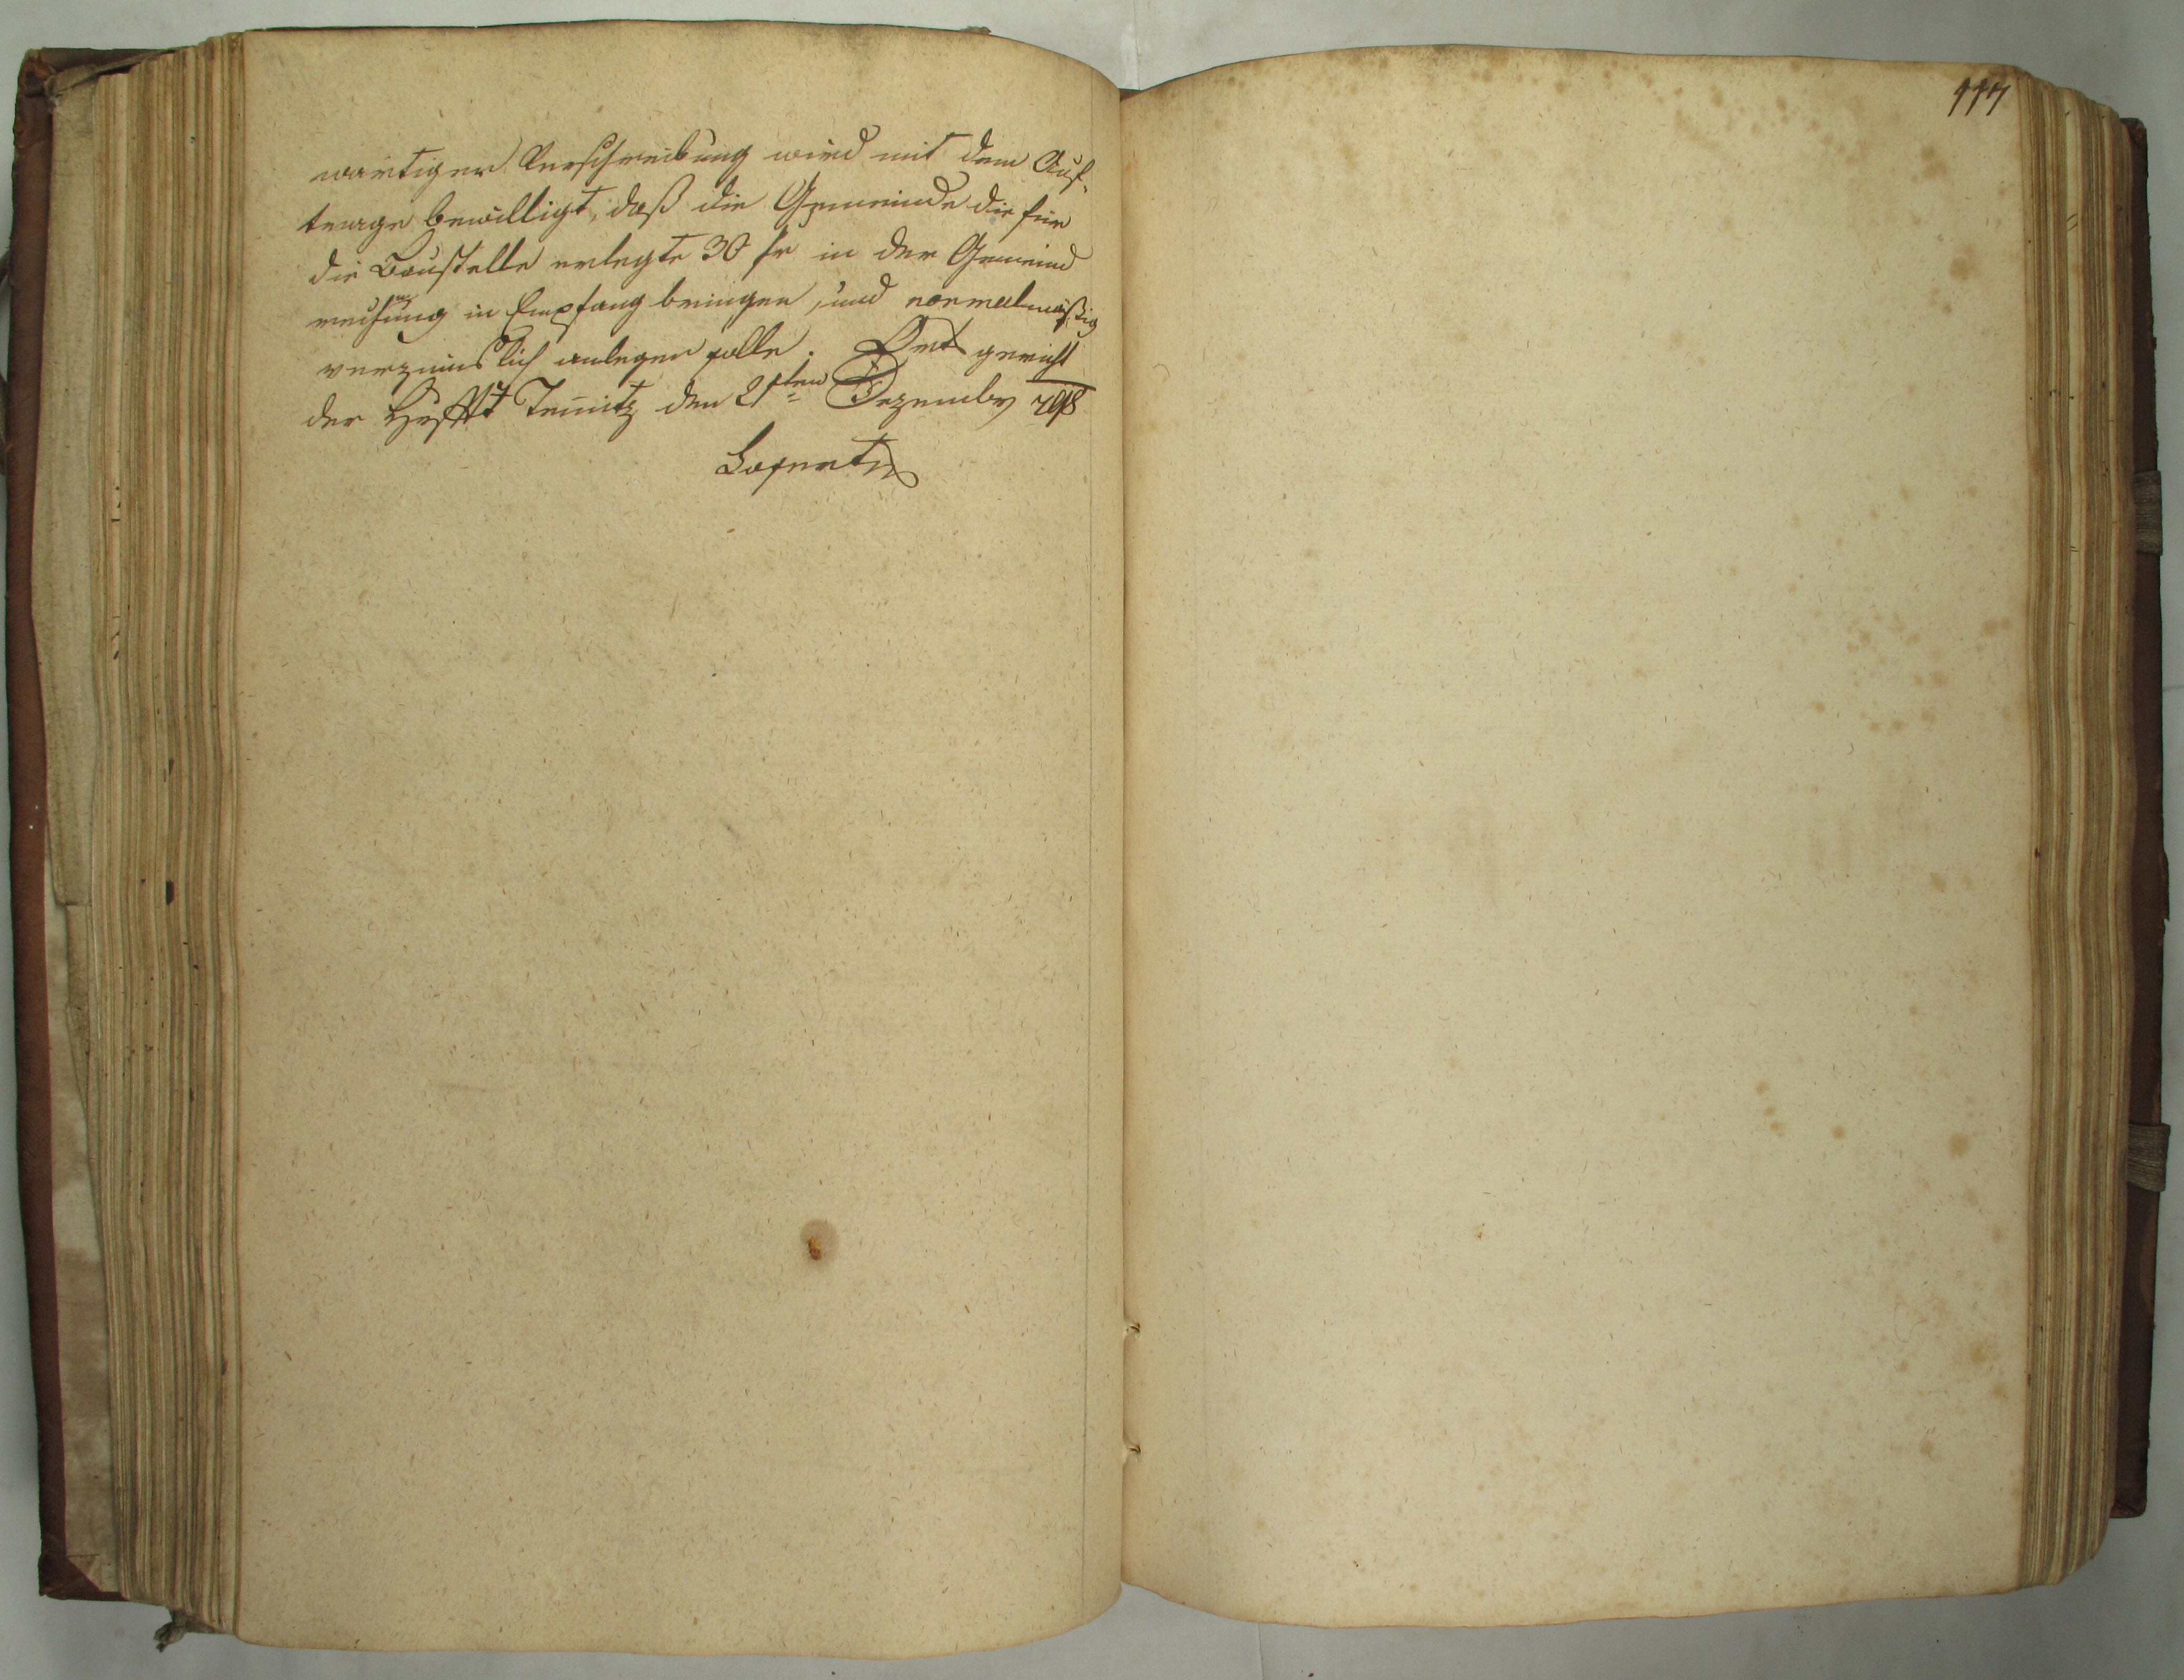 117
wärtiger Verschreibung wird mit dem Auf-
trage bewilligt, daß die Gemeinde die für
die Baustelle erlegte 30 fr in der Gemeind
rechnung in Empfang bringen, und normalmäßig
verzinslich anlegen solle. Ortsgericht
der Hrschft Temitz den 21ten Dezember 798